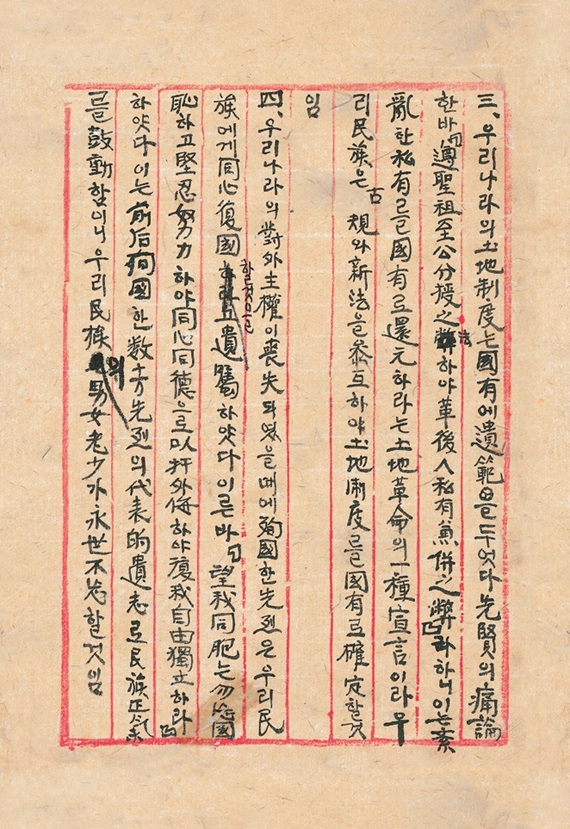 三、우리나라의土地制度는國有에遺範을두엇다先賢의痛論
한바「遵聖祖至公分授之法하야革後人私有兼倂之弊」라하니이는紊
亂한私有를國有로還元하라는土地革命의一種宣言이라우
리民族은古規와新法을參互하야土地制度를國有로確定할것
임
四、우리나라의對外主權이喪失되엿을때에殉國한先烈은우리民
族에게同心復國할것으로遺囑하얏다이른바「望我同胞는勿忘國
恥하고堅忍努力하야同心同德으로以扞外侮하야復我自由獨立하라」
하얏다이는前后殉國한数十万先烈의代表的遺志로民族正氣
를鼓動함이니우리民族의男女老少가永世不忘할것임